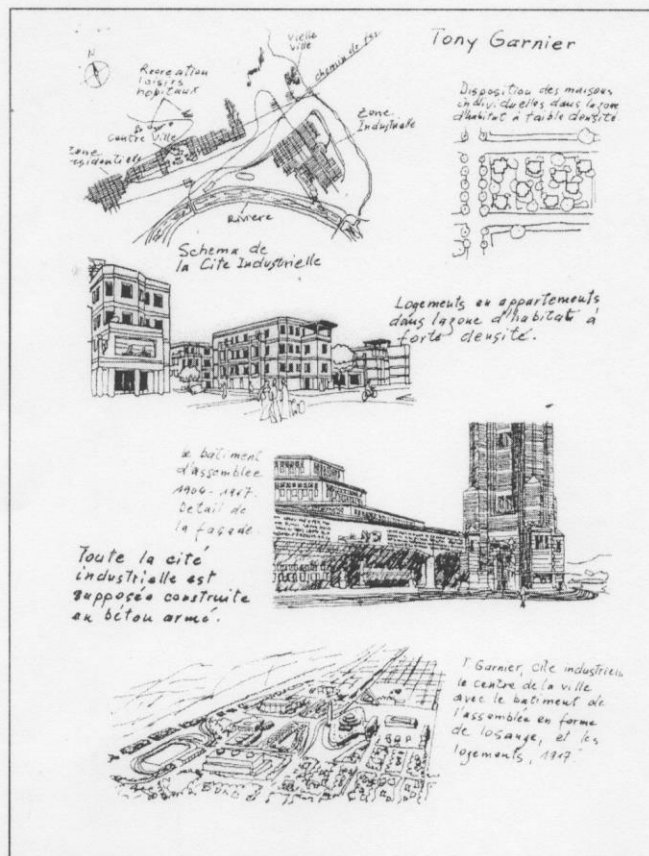 Tony Garnier
N
Vielle
ville
chemin de fer
Recreation
loisirs
hopitaux
Centre Ville
Zone
Industrielle
Zone
residentielle
Riviere
Schema de
la Cite Industrielle
Disposition des maisons
individuelles dans la zone
d'habitat à faible densité
Logements en appartements
dans la zone d'habitat à
forte densité.
le batiment
d'assemblée
1904-1917.
Detail de
la façade.
Toute la cité
industrielle est
supposée construite
en béton armé.
T Garnier, Cite industriel
le centre de la ville
avec le batiment de
l'assemblée en forme
de losange, et les
logements, 1917.